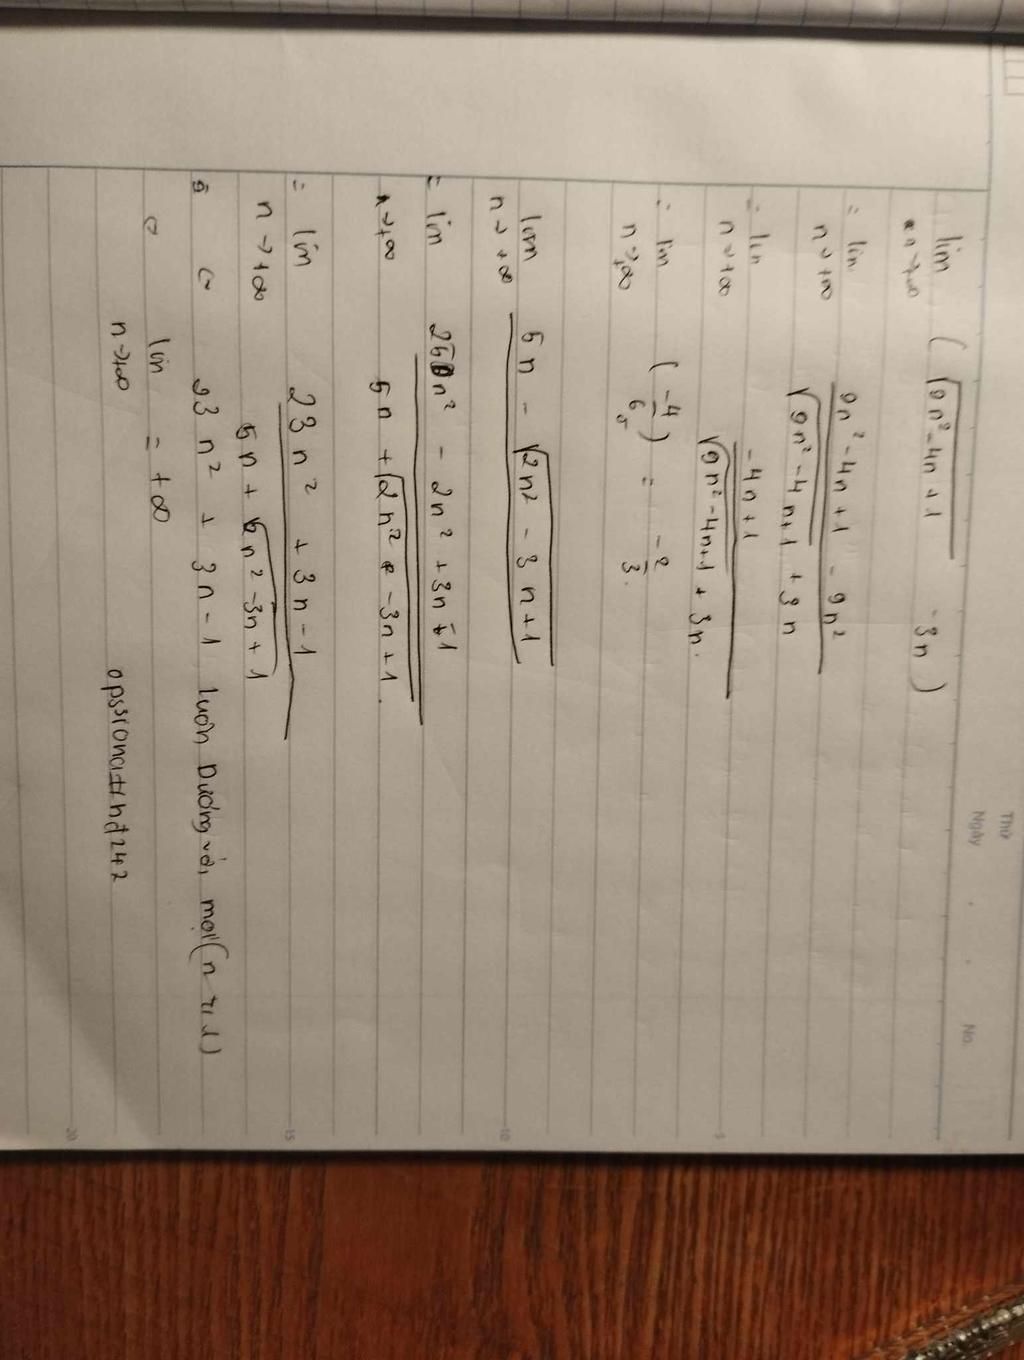 Thứ
Ngày . . No.
lim ( √(9n² - 4n + 1) - 3n )
n→+∞
= lim (9n² - 4n + 1 - 9n²) / (√(9n² - 4n + 1) + 3n)
n→+∞
= lim (-4n + 1) / (√(9n² - 4n + 1) + 3n)
n→+∞
= lim (-4/6) = -2/3
n→+∞
lim 5n - √(2n² - 3n + 1)
n→+∞
= lim (25n² - 2n² + 3n - 1) / (5n + √(2n² - 3n + 1))
n→+∞
= lim (23n² + 3n - 1) / (5n + √(n² - 3n + 1))
n→+∞
23n² + 3n - 1 luôn Dương với mọi (n ≥ 1)
lim = +∞
n→+∞
5
10
15
20